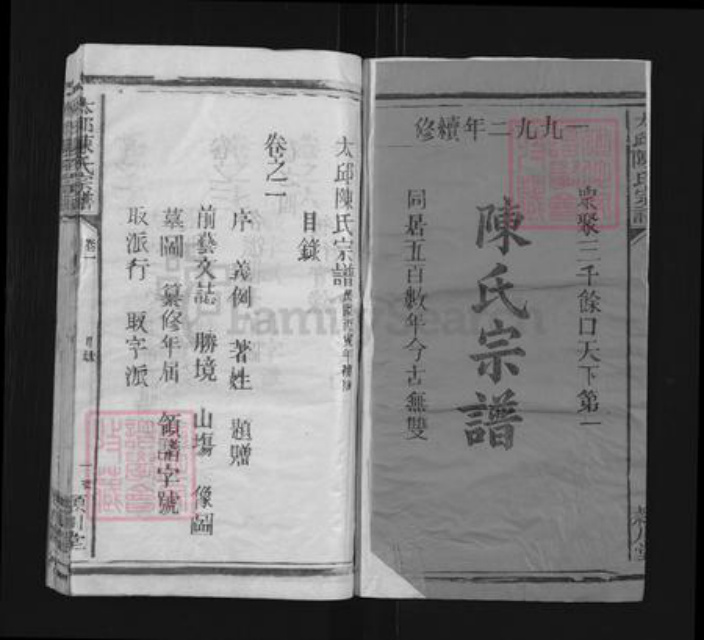 一九九二年續修
衆聚三千餘口天下第一
陳氏宗譜
同居五百數年今古無雙
太邱陳氏宗譜
目錄
卷之一
序 義例 著姓 題贈
前藝文誌 勝境 山塲 像圖
墓圖 纂修年屆 領譜字號
取派行 取字派
太邱陳氏宗譜
卷一
FamilySearch